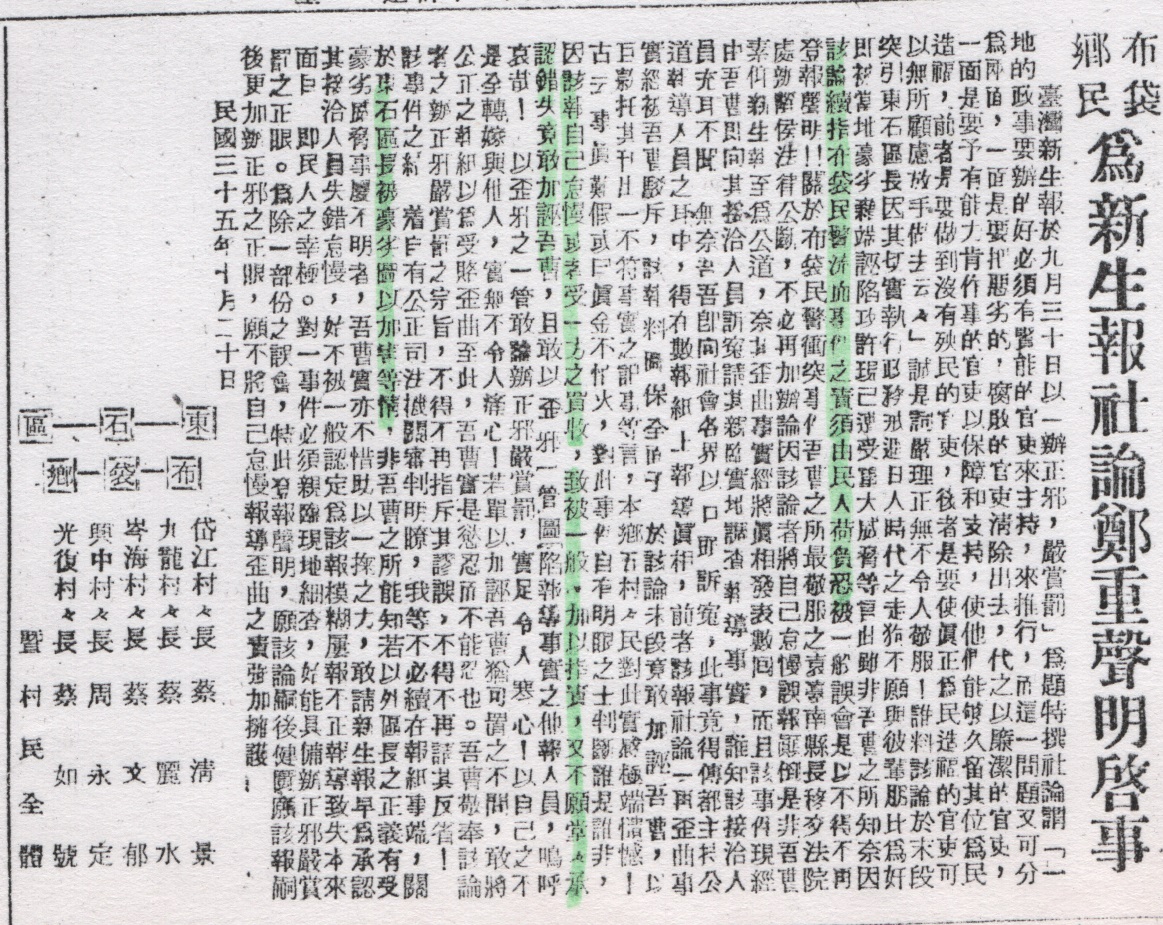 布袋
鄉民
為新生報社論鄭重聲明啓事
臺灣新生報於九月三十日以「辦正邪，嚴賞罰」為題特撰社論謂「一
地的政事要辦的好必須有賢能的官吏來主持，來推行，而這一問題又可分
為兩面，一面是要把惡劣的，腐敗的官吏清除出去，代之以廉潔的官吏，
一面是要予有能力肯作事的官吏以保障和支持，使他們能够久留其位為民
造福，前者是要做到沒有殃民的官吏，後者是要使真正為民造福的官吏可
以無所顧慮放手做去云々」誠是詞嚴理正無不令人敬服！誰料該論於末段
突引東石區長因其切實執行政務視過日人時代之走狗不願與彼輩朋比為奸
即被當地豪劣藉端誣陷攻訐現已遭受莫大威脅等言此即非吾曹之所知奈因
該論續指布袋民警流血事件之責須由民人荷負恐被一般誤會是以不得不再
登報聲明!!關於布袋民警衝突事件吾曹之所最敬服之袁臺南縣長移交法院
處辦靜侯法律公斷，不必再加辦論因該論者將自己怠慢誤報顛倒是非吾曹
素仰新生報至為公道，奈其歪曲事實經將真相發表數回，而且該事件現經
中吾曹即向其接洽人員訴冤請其親臨實地調查報導事實，誰知該接洽人
員充耳不聞　無奈吾吾卽向社會各界以口即訴冤，此事竟得傳都主持公
道報導人員之耳中，得在數報紙上報導真相，前者該報社論一再歪曲事
實經被吾曹駁斥，該報料圖保全面子　於該論末段竟敢加誣吾曹，以
巨嘉托其刊出一不符事實之記事等言，本鄉五村々民對此實感極端憤憾！
古云事真難假或曰真金不怕火，對此事件自有明眼之士判斷誰是誰非，
因該報自己怠慢或者受一方之買收，致被一般加以指責，又不願堂々承
認錯失竟敢加誣吾曹，且敢以歪邪一管圖陷報導事實之他報人員，嗚呼
哀哉！　以歪邪之一管敢論辦正邪嚴賞罰，實足令人寒心！以自己之不
是全轉嫁與他人，實無不令人痛心！若單以加誣吾曹猶可置之不問，敢將
公正之報紙以為受賂歪曲至此，吾曹實是慾忍而不能忍也。吾曹敬奉該論
者之辦正邪嚴賞罰之宗旨，不得不再指斥其謬誤，不得不再請其反省！
該事件之結　着自有公正司法機關審判明瞭，我等不必續在報紙事端，關
於東石區長被豪劣圖以加害等情，非吾曹之所能知若以外區長之正義有受
豪劣威脅事屬不明者，吾曹實亦不惜助以一擇之力，敢請新生報早為承認
其接洽人員失錯怠慢，好不被一般認定為該報模糊屢報不正報導致失本來
面目　即民人之幸極。對一事件必須親臨現地細查，始能具備辦正邪嚴賞
罰之正眼。為除一部份之誤會，特此登報聲明，願該論嗣後健廣願該報嗣
後更加辦正邪之正眼，願不將自己怠慢報導歪曲之責強加擁護！
民國三十五年十月二十日
東—石—區
布—袋—鄉
岱江村々長　蔡清景
九龍村々長　蔡麗水
岑海村々長　蔡文郁
興中村々長　周永定
光復村々長　蔡如號
暨村民全體